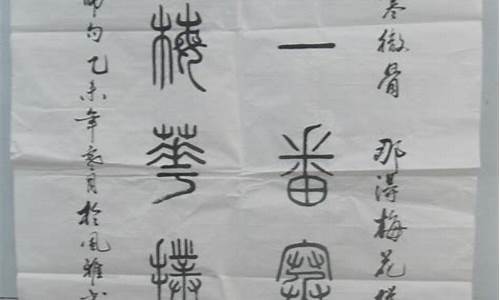 寒徹骨 那得梅花撲
一番寒
梅華撲
句乙未年月於風雅